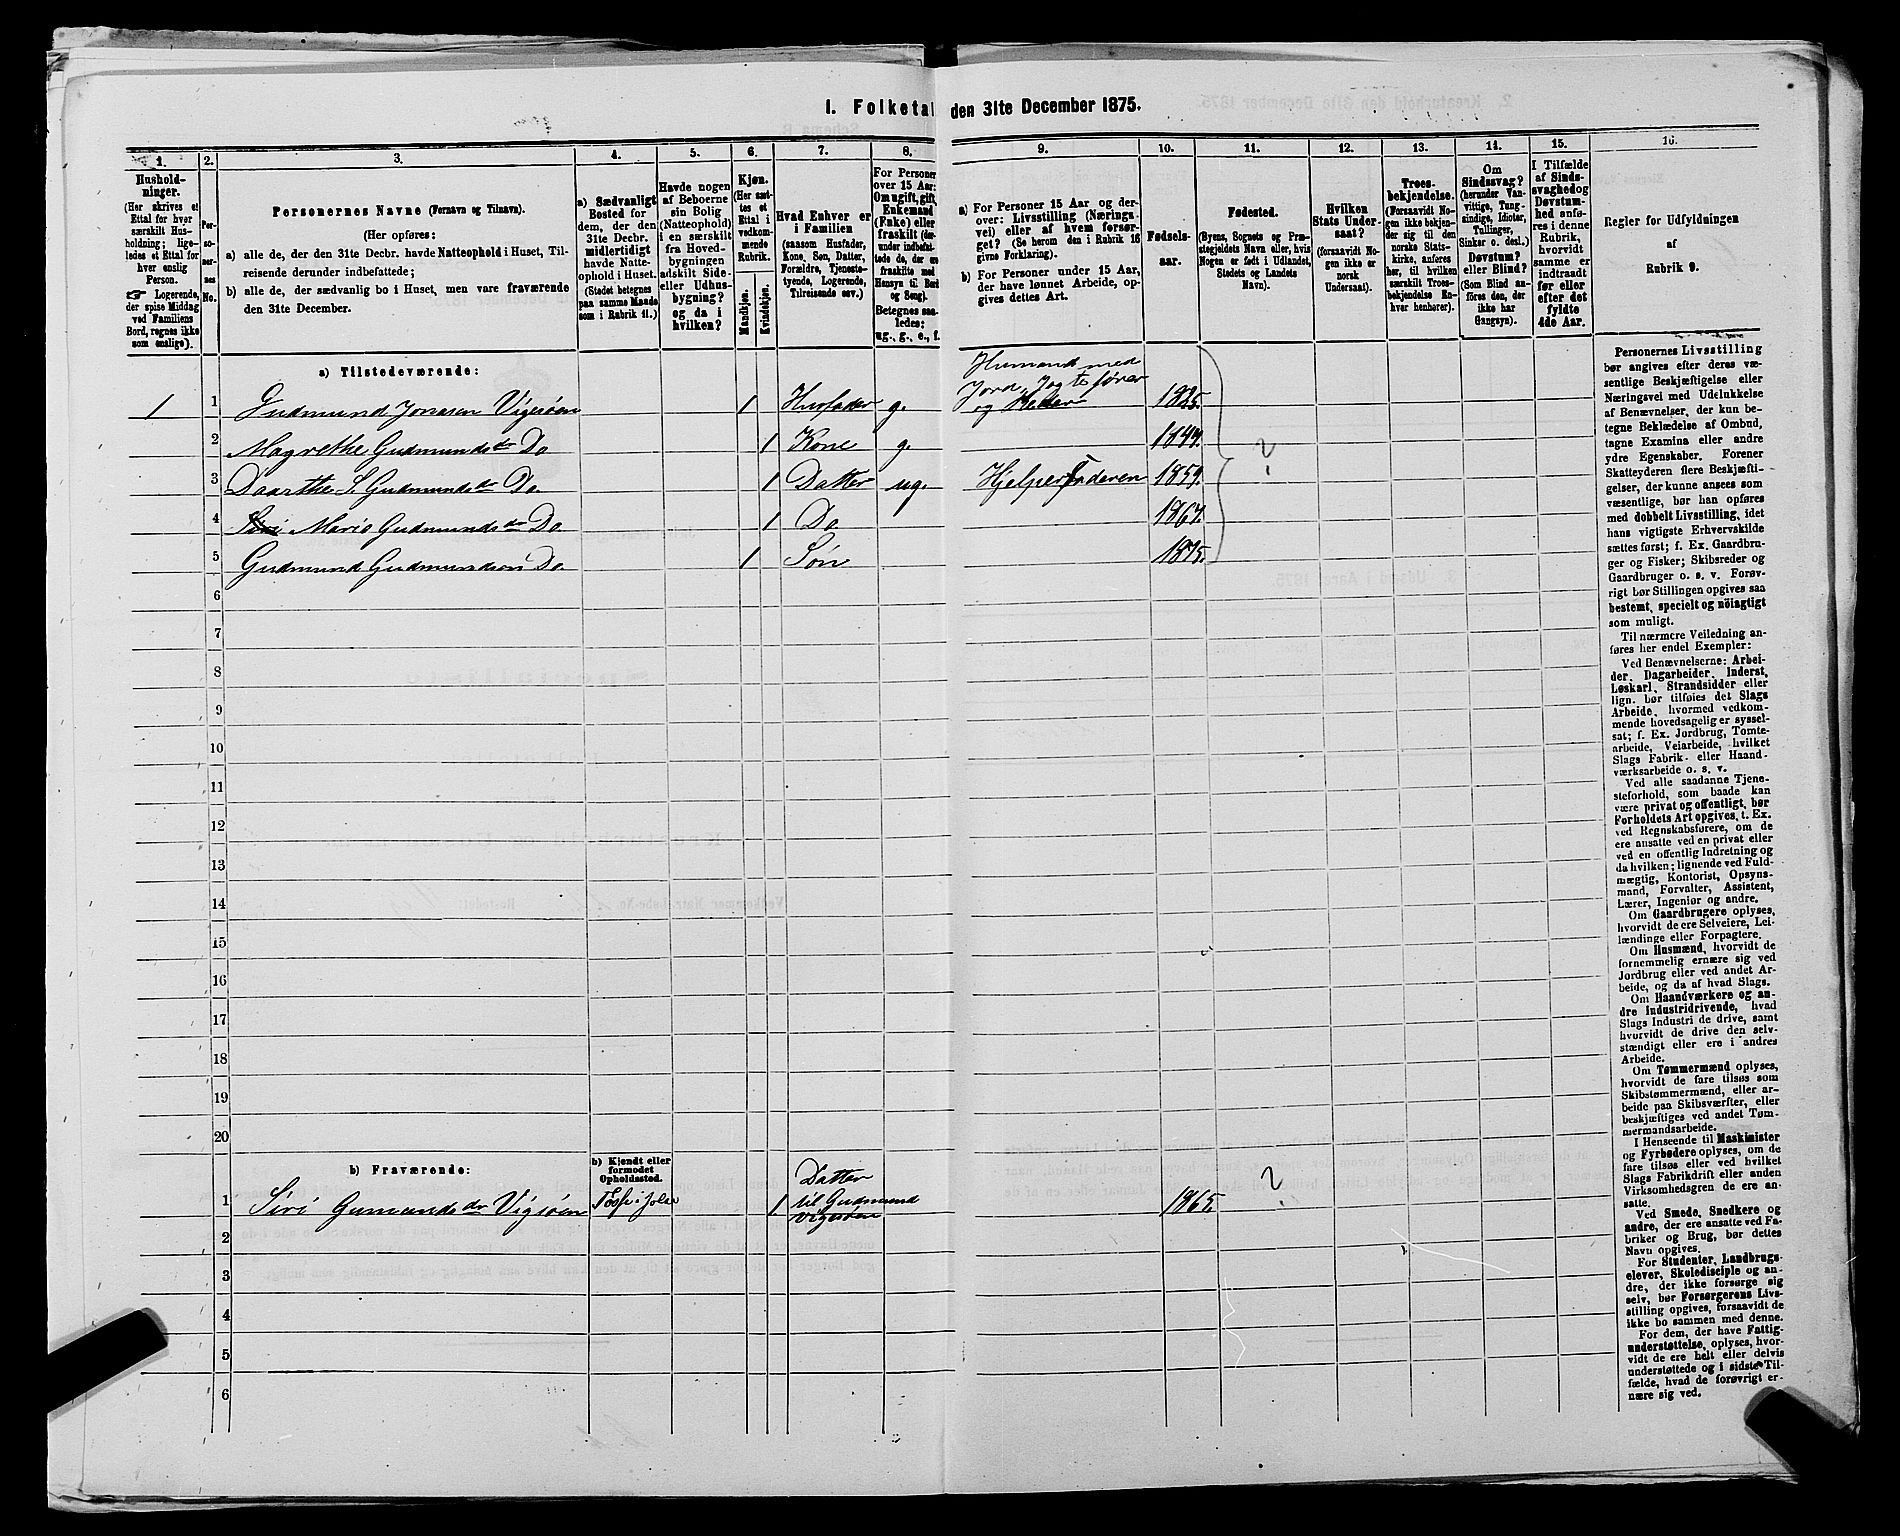 1. Folketal den 31te December 1875.
1. 2. 3. 4. 5. 6. 7. 8. 9. 10. 11. 12. 13. 14. 15. 16.
Hushold-
ninger.
(Her skrives et
Ettal for hver
særskilt Hus-
holdning; lige-
ledes et Ettal for
hver enslig
Person.
☞ Logerende,
der spise Middag
ved Familiens
Bord, regnes ikke
som enslige).
Per-
so-
ner-
nes
No.
Personernes Navne (Fornavn og Tilnavn).
(Her opføres:
a) alle de, der den 31te Decbr. havde Natteophold i Huset, Til-
reisende derunder indbefattede;
b) alle de, der sædvanlig bo i Huset, men vare fraværende
den 31te December.
a) Sædvanligt
Bosted for
dem, der den
31te Decbr.
midlertidigt
havde Natte-
ophold i Huset.
(Stedet betegnes
paa samme Maade
som i Rubrik 11.)
Havde nogen
af Beboerne
sin Bolig
(Natteophold)
i en særskilt
fra Hoved-
bygningen
adskilt Side-
eller Udhus-
bygning?
og da i
hvilken?
Kjøn.
(Her sæt-
tes et
Ettal i
vedkom-
mende
Rubrik.
Mandkjøn.
Kvindekjøn.
Hvad Enhver er
i Familien
(saasom Husfader,
Kone, Søn, Datter,
Forældre, Tjeneste-
tyende, Logerende,
Tilreisende osv.)
For Personer
over 15 Aar:
Om ugift, gift,
Enkemand
(Enke) eller
fraskilt (der-
under indbefat-
tede de, der ere
fraskilte med
Hensyn til Bord
og Seng).
Betegnes saa-
ledes:
ug., g., e., f.
a) For Personer 15 Aar og der-
over: Livsstilling (Nærings-
vei) eller af hvem forsør-
get? (Se herom den i Rubrik 16
givne Forklaring).
b) For Personer under 15 Aar,
der have lønnet Arbeide, op-
gives dettes Art.
Fødsels-
aar.
Fødested.
(Byens, Sognets og Præ-
stegjeldets Navn eller, hvis
Nogen er født i Udlandet,
Stedets og Landets
Navn).
Hvilken
Stats Under-
saat?
(forsaavidt No-
gen ikke er
norsk
Undersaat).
Troes-
bekjendelse.
(Forsaavidt No-
gen ikke bekjen-
der sig til den
norske Stats-
kirke, anføres
her, til hvilken
særskilt Troes-
bekjendelse En-
hver henhører).
Om
Sindssvag?
(herunder Van-
vittige, Tung-
sindige, Idioter,
Tullinger,
Sinker o. desl.)
Døvstum?
eller Blind?
(Som Blind an-
føres den, der
ikke har
Gangsyn).
I Tilfælde
af Sinds-
svaghed og
Døvstum-
hed anfø-
res i denne
Rubrik,
hvorvidt
samme er
indtraadt
før eller
efter det
fyldte
4de Aar.
Regler for Udfyldningen
af
Rubrik 9.
a) Tilstedeværende:
Humand med
Jord, Jagtefører
1 1 Gudmund Jonasen Vigsøen 1 Husfader g. og 1825.
2 Magrethe Gudmundsdr Do 1 Kone g. 1844.
3 Daarthe S. Gudmundsdr Do. 1 Datter ug. Hjelper Faderen 1859.
4 Marie Gudmundsdr Do 1 Do 1867.
5 Gudmund Gudmundson Do. 1 Søn 1875.
?
6
7
8
9
10
11
12
13
14
15
16
17
18
19
20
b) Fraværende:
b) Kjendt eller
formodet
Opholdssted.
Datter
1 Siri Gumundsdr Vigsøen 1 til Gudmund 1865. ?
Vigesøen
2
3
4
5
6
Personernes Livsstilling
bør angives efter deres væ-
sentlige Beskjæftigelse eller
Næringsvei med Udelukkelse
af Benævnelser, der kun be-
tegne Beklædelse af Ombud,
tagne Examina eller andre
ydre Egenskaber. Forener
Skatteyderen flere Beskjæfti-
gelser, der kunne ansees som
væsentlige, bør han opføres
med dobbelt Livsstilling, idet
hans vigtigste Erhvervskilde
sættes først; f. Ex. Gaardbru-
ger og Fisker; Skibsreder og
Gaardbruger o. s. v. Forøv-
rigt bør Stillingen opgives saa
bestemt, specielt og nöiagtigt
som muligt.
Til nærmere Veiledning an-
føres her endel Exempler:
Ved Benævnelserne: Arbei-
der, Dagarbeider, Inderst,
Løskarl, Strandsidder eller
lign. bør tilføies det Slags
Arbeide, hvormed vedkom-
mende hovedsagelig er syssel-
sat; f. Ex. Jordbrug, Tomte-
arbeide, Veiarbeide, hvilket
Slags Fabrik- eller Haand-
værksarbeide o. s. v.
Ved alle saadanne Tjene-
steforhold, som baade kan
være privat og offentligt, bør
Forholdets Art opgives, t. Ex.
ved Regnskabsførere, om de
ere ansatte ved en privat eller
ved en offentlig Indretning og
da hvilken; lignende ved Fuld-
mægtig, Kontorist, Opsyns-
mand, Forvalter, Assistent,
Lærer, Ingeniør og andre.
Om Gaardbrugere oplyses,
hvorvidt de ere Selveiere, Lei-
lændinge eller Forpagtere.
Om Husmænd, hvorvidt de
fornemmelig ernære sig ved
Jordbrug eller ved andet Ar-
beide, og da af hvad Slags.
Om Haandværkere og an-
dre Industridrivende, hvad
Slags Industri de drive, samt
hvorvidt de drive den selv-
stændigt eller ere i andres
Arbeide.
Om Tømmermænd oplyses,
hvorvidt de fare tilsøs som
Skibstømmermænd, eller ar-
beide paa Skibsværfter, eller
beskjæftiges ved andet Tøm-
mermandsarbeide.
I Henseende til Maskinister
og Fyrbødere oplyses, om de
fare tilsøs eller ved hvilket
Slags Fabrikdrift eller anden
Virksomhedsgren de ere an-
satte.
Ved Smede, Snedkere og
andre, der ere ansatte ved Fa-
briker og Brug, bør dettes
Navn opgives.
For Studenter, Landbrugs-
elever, Skoledisciple og an-
dre, der ikke forsørge sig
selv, bør Forsørgerens Livs-
stilling opgives, forsaavidt de
ikke bo sammen med denne.
For dem, der have Fattig-
understøttelse, oplyses, hvor-
vidt de ere helt eller delvis
understøttede og i sidste Til-
fælde, hvad de forøvrigt er-
nære sig ved.